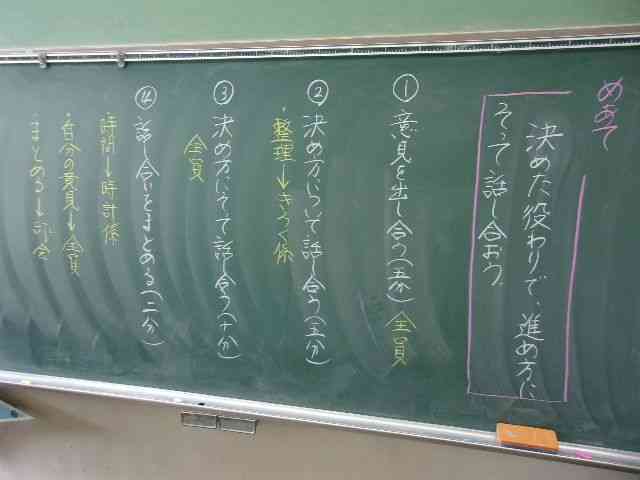 めあて
決めた役わりで、進め方に
そって話し合おう。
① 意見を出し合う(五分) 全員
② 決め方について話し合う(五分)
・整理→きろく係
③ 決め方にそって話し合う(十分)
全員
④ 話し合いをまとめる(二分)
・時間→時計係
・自分の意見→全員
・まとめる→司会